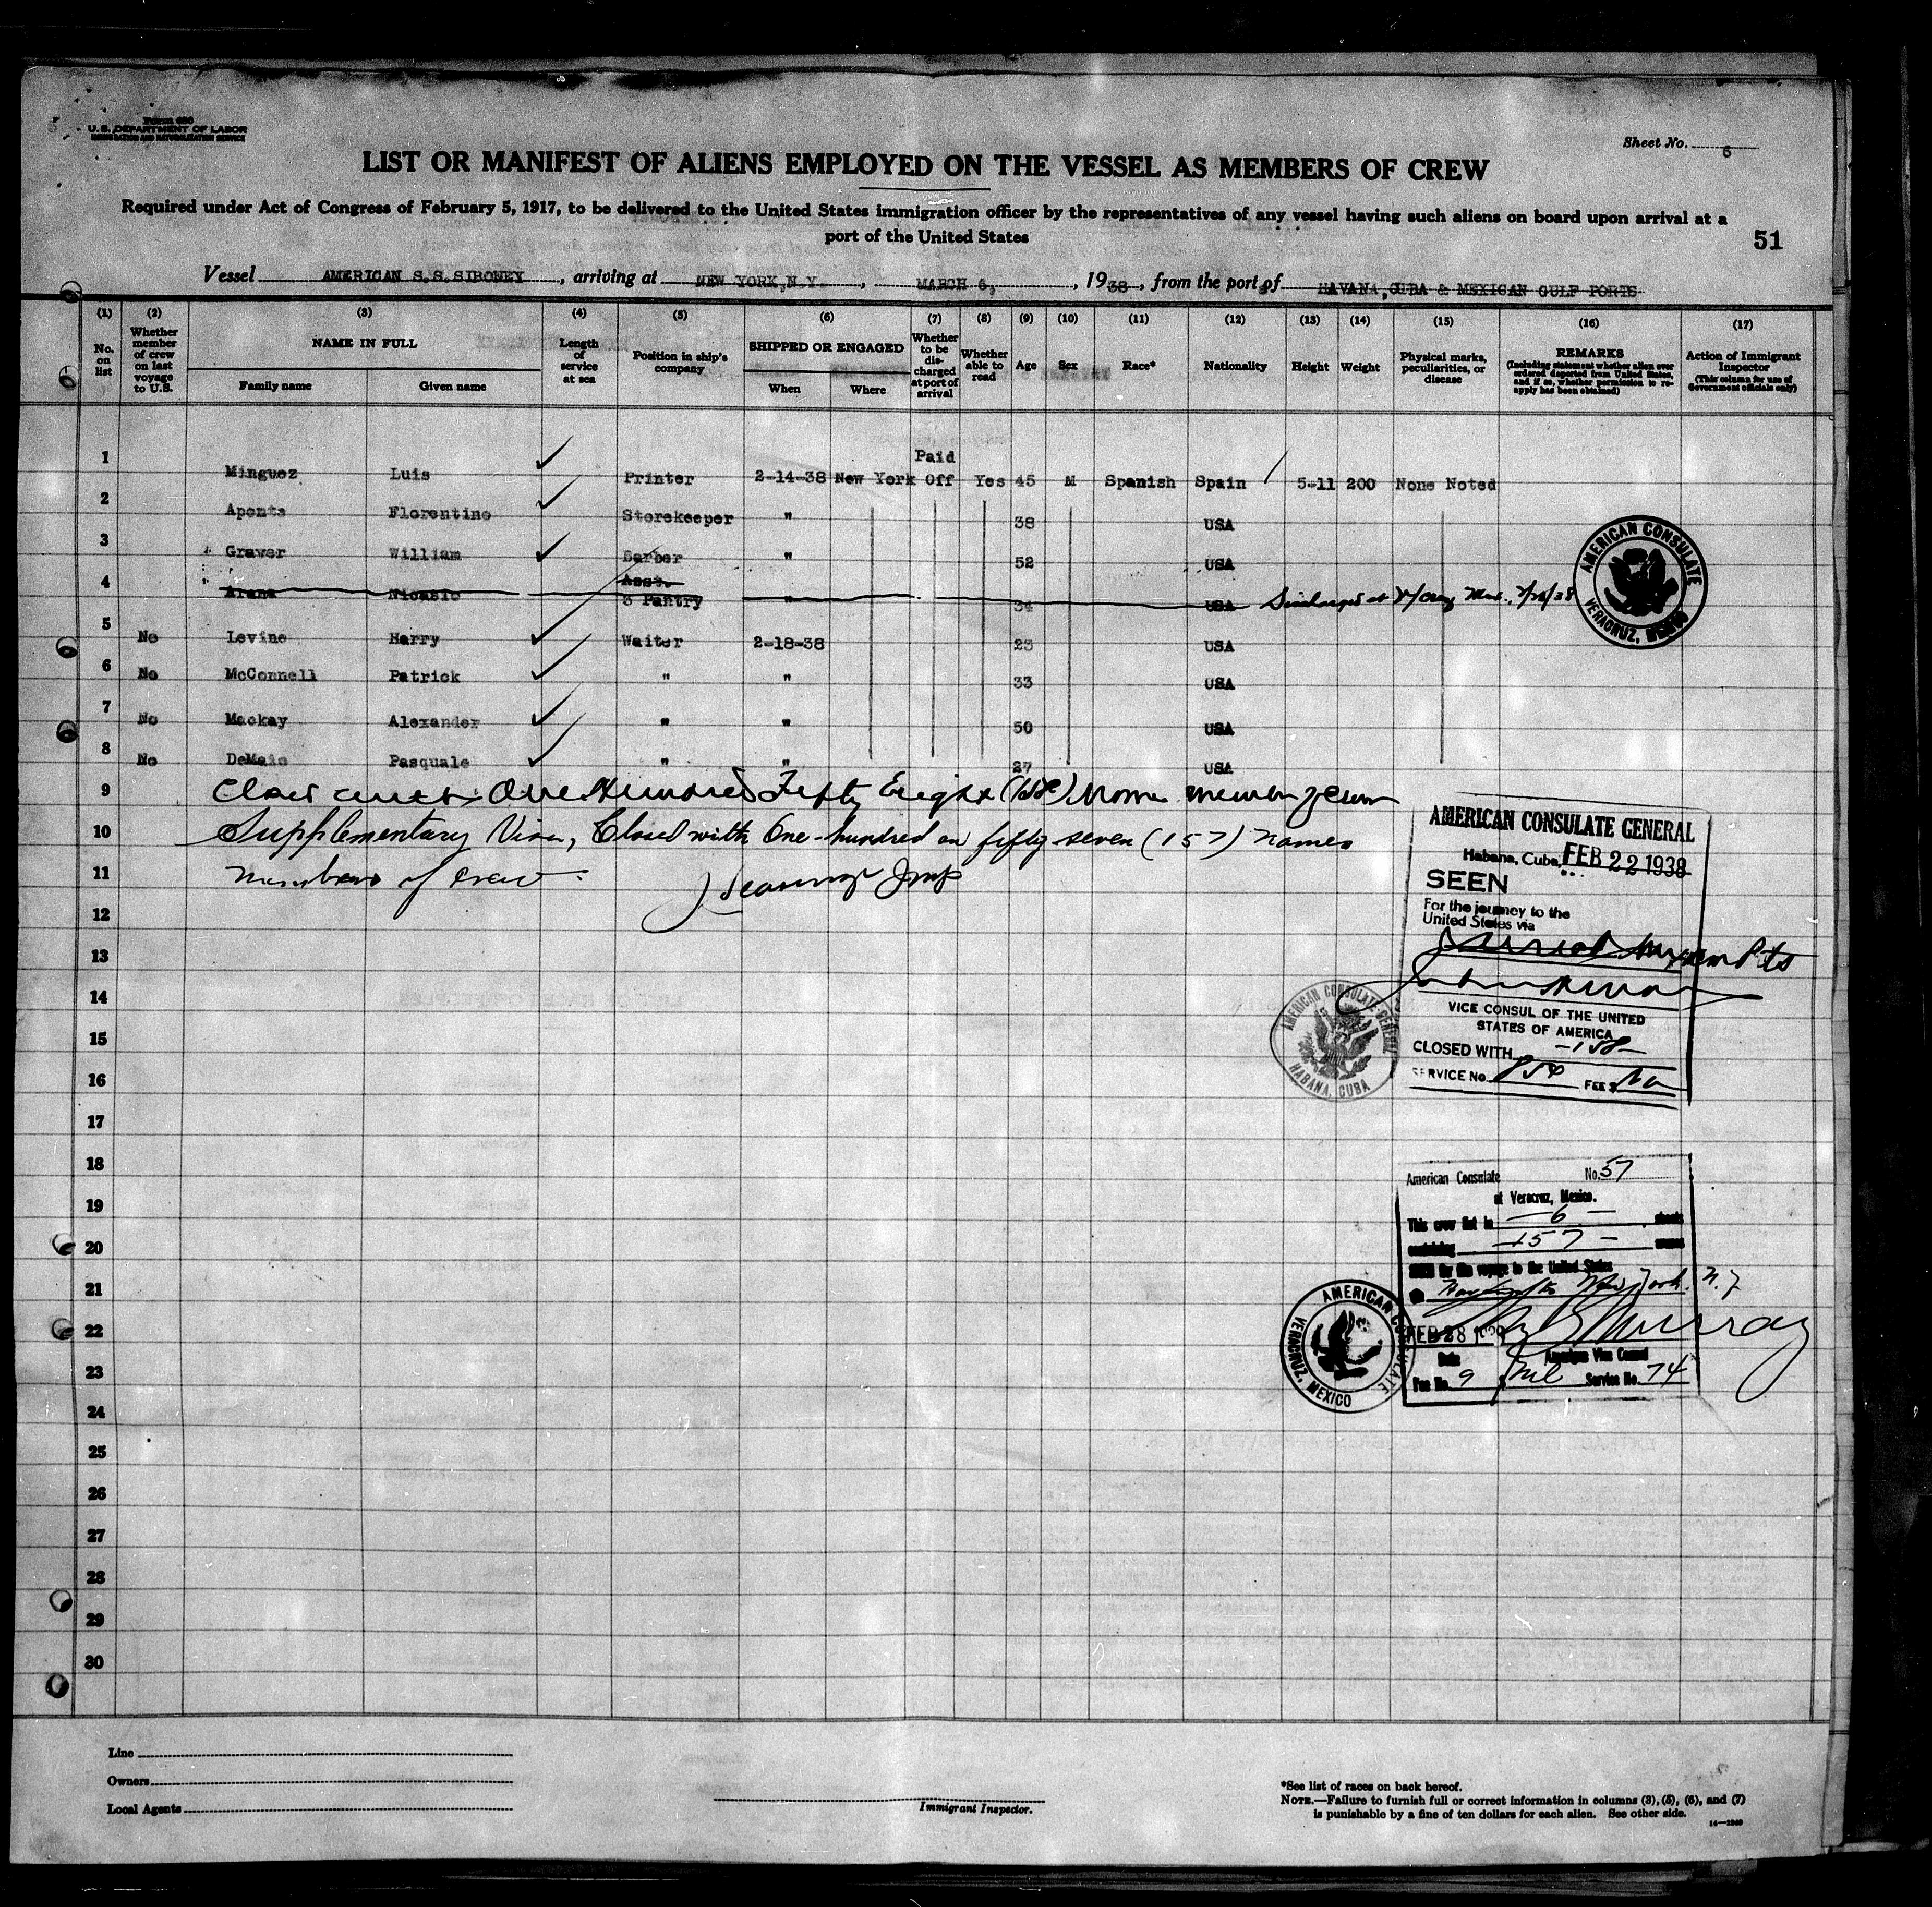 Form 680
U. S. DEPARTMENT OF LABOR
IMMIGRATION AND NATURALIZATION SERVICE
Sheet No. 6
LIST OR MANIFEST OF ALIENS EMPLOYED ON THE VESSEL AS MEMBERS OF CREW
Required under Act of Congress of February 5, 1917, to be delivered to the United States immigration officer by the representatives of any vessel having such aliens on board upon arrival at a
port of the United States
51
Vessel AMERICAN S.S.SIBONEY, arriving at NEW YORK,N.Y., MARCH 6, 1938, from the port of HAVANA,CUBA & MEXICAN GULF PORTS
(1) (2) (3) (4) (5) (6) (7) (8) (9) (10) (11) (12) (13) (14) (15) (16) (17)
No. on list
Whether member of crew on last voyage to U.S.
NAME IN FULL
Family name Given name
Length of service at sea
Position in ship's company
SHIPPED OR ENGAGED
When Where
Whether to be discharged at port of arrival
Whether able to read
Age
Sex
Race*
Nationality
Height
Weight
Physical marks, peculiarities, or disease
REMARKS
(Including statement whether alien ever ordered deported from United States, and if so, whether permission to reapply has been obtained)
Action of Immigrant Inspector
(This column for use of Government officials only)
1 Minguez Luis Printer 2-14-38 New York Paid Off Yes 45 M Spanish Spain 5-11 200 None Noted
2 Aponte Florentino Storekeeper " 38 USA
3 Graver William Barber " 52 USA
4 Arana Nicasio Asst. S Pantry " 34 USA Discharged at V/Cruz Mex. 2/28/38
5 No Levine Harry Waiter 2-18-38 23 USA
6 No McConnell Patrick " " 33 USA
7 No Mackay Alexander " " 50 USA
8 No DeMaio Pasquale " " 27 USA
9 One Hundred Fifty Eight (158)
10 Supplementary Visa, Closed with One-hundred an fifty-seven (157) names
11 Members of Crew.
12
13
14
15
16
17
18
19
20
21
22
23
24
25
26
27
28
29
30
AMERICAN CONSULATE
VERACRUZ, MEXICO
AMERICAN CONSULATE GENERAL
Habana, Cuba, FEB 22 1938
SEEN
For the journey to the
United States via
VICE CONSUL OF THE UNITED
STATES OF AMERICA
CLOSED WITH -158-
SERVICE No. 854 FEE $ No
AMERICAN CONSULATE GENERAL
HABANA, CUBA
American Consulate No. 57
at Veracruz, Mexico.
This crew list in -6- sheets
containing -157- names
SEEN for the voyage to the United States
New York. N.Y.
FEB 28 1938 Murray
Date American Vice Consul
Fee No. 9 Nil Service No. 74
AMERICAN CONSULATE
VERACRUZ, MEXICO
Line
Owners
Local Agents
Immigrant Inspector.
*See list of races on back hereof.
NOTE.—Failure to furnish full or correct information in columns (3), (5), (6), and (7)
is punishable by a fine of ten dollars for each alien. See other side.